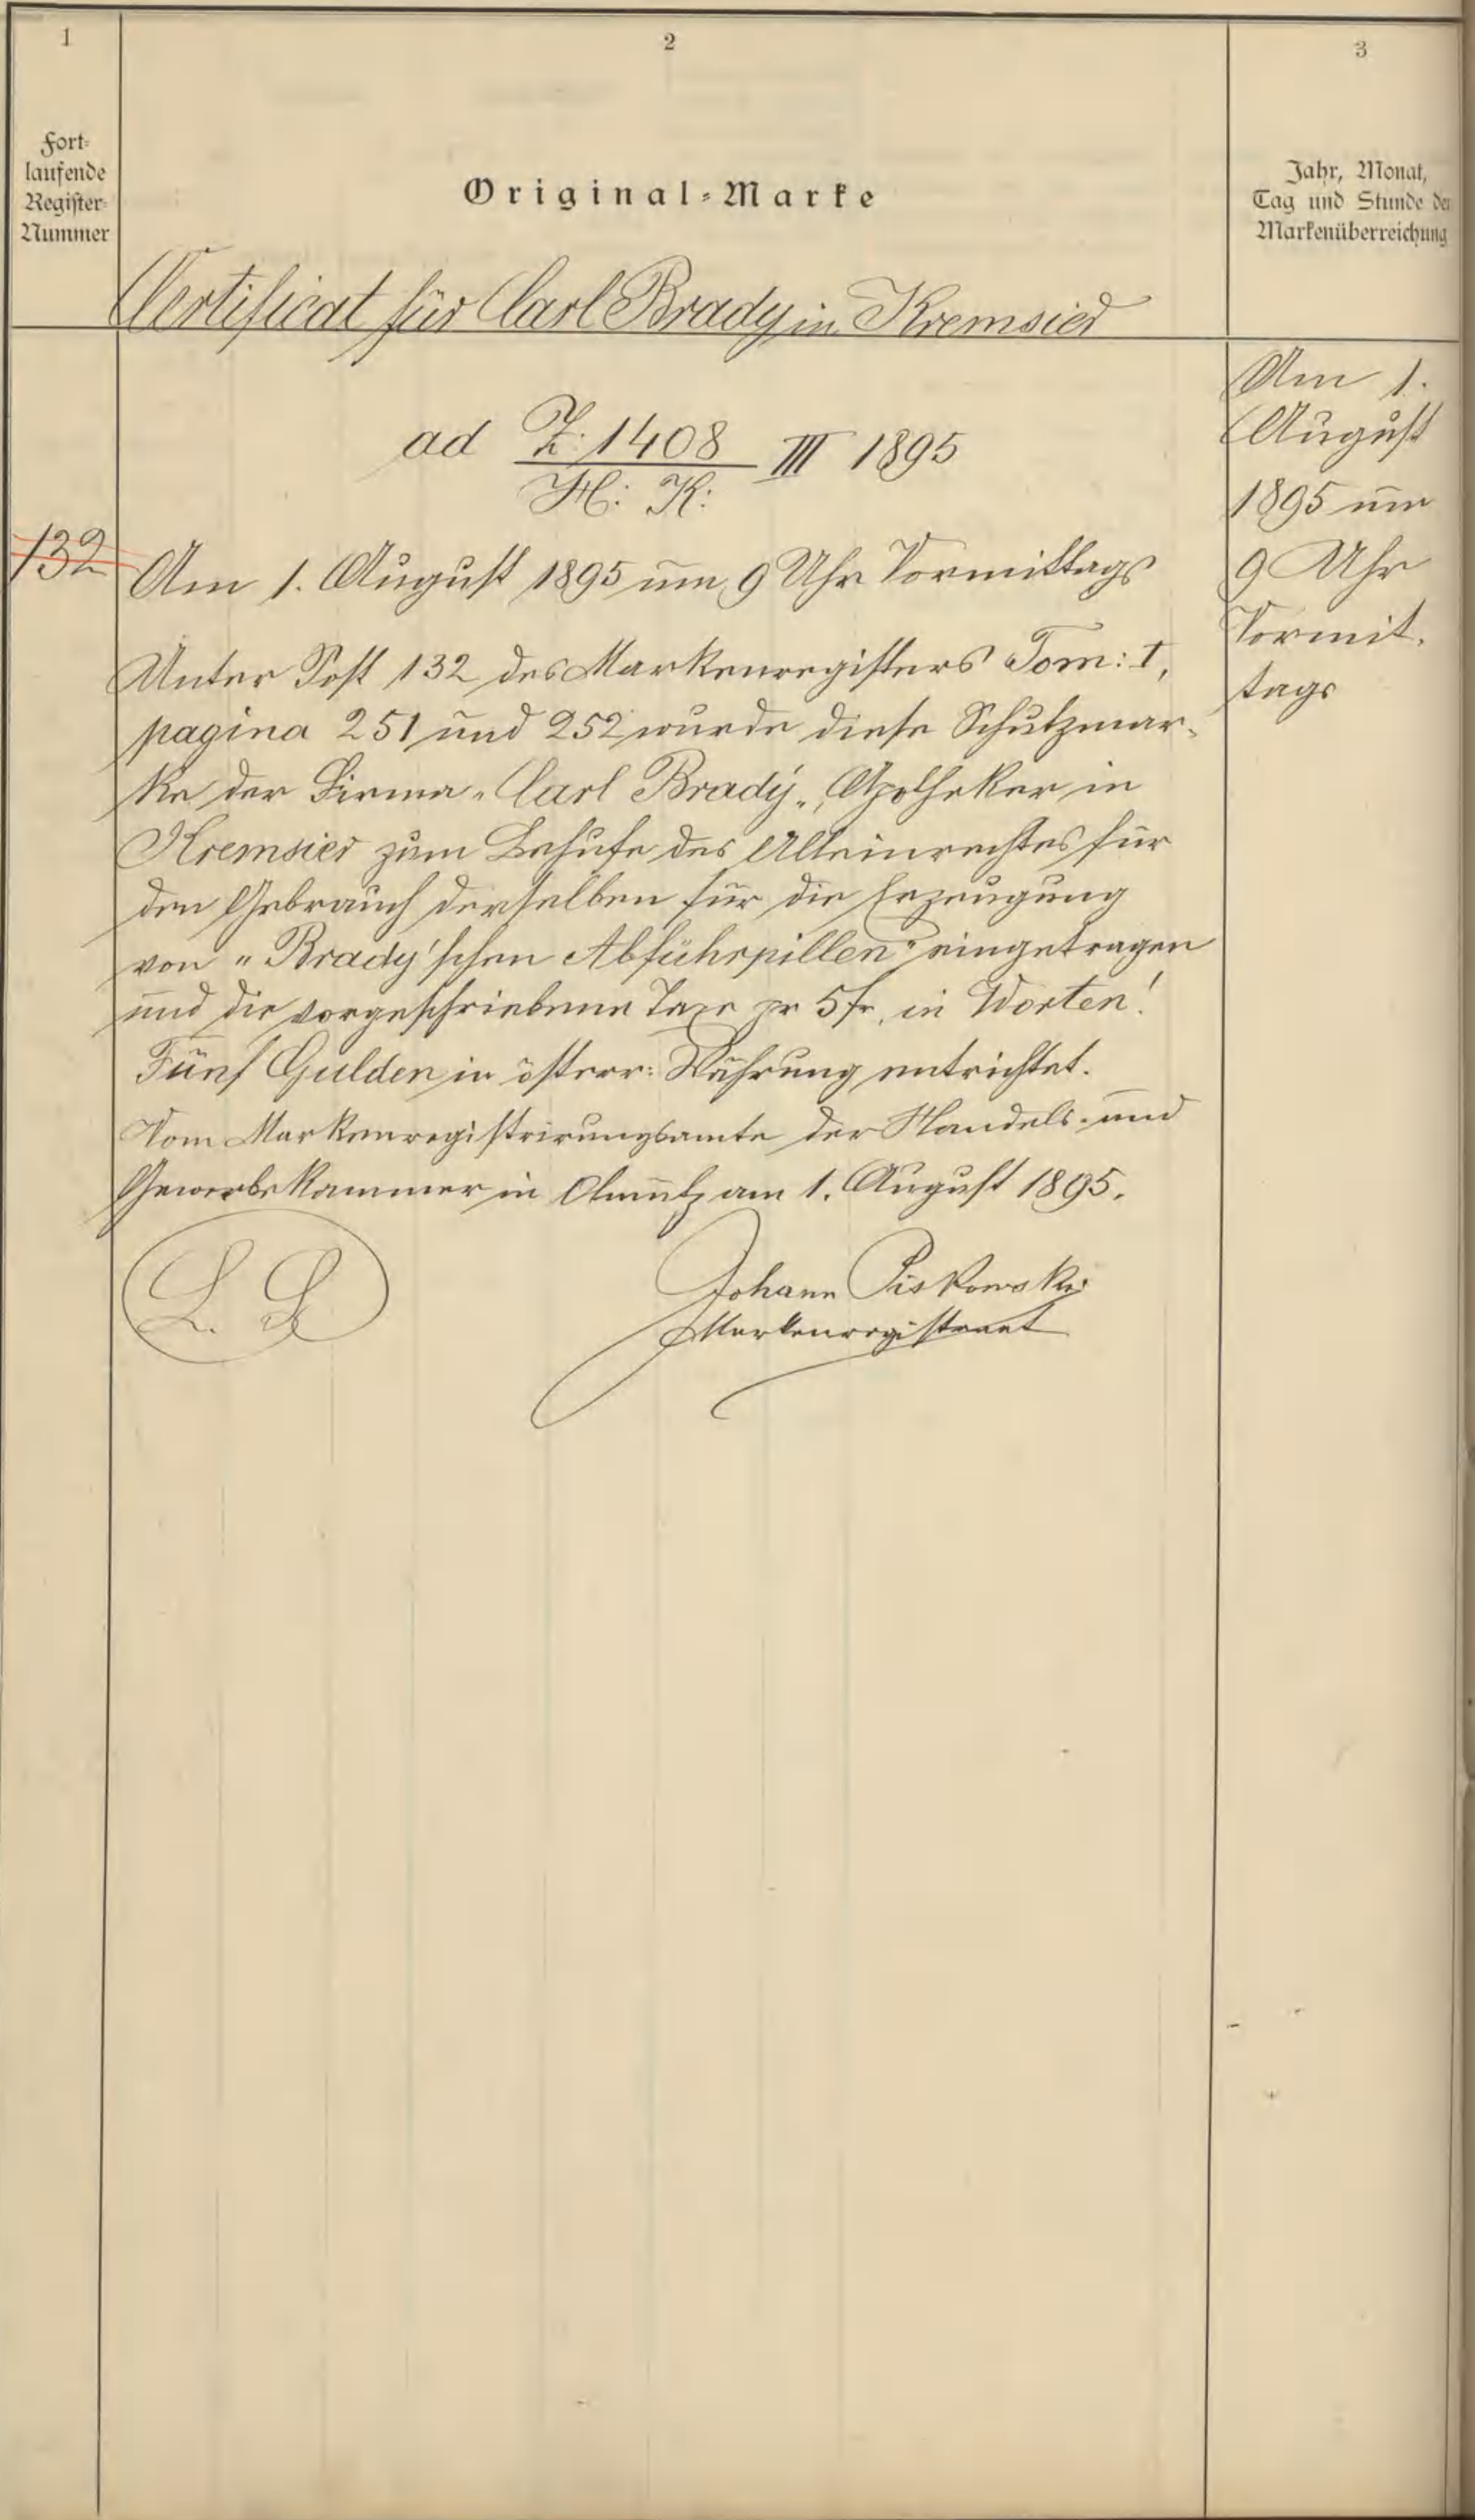 1
2
3
Fort-
laufende
Register-
Nummer
Original-Marke
Jahr, Monat,
Tag und Stunde der
Markenüberreichung
Certificat für Carl Brady in Kremsier
ad Z: 1408 III 1895
H: K:
132
Am 1. August 1895 um 9 Uhr Vormittags
Unter Post 132 des Markenregisters Tom: I,
pagina 251 und 252 wurde diese Schutzmar-
ke der Firma „Carl Brady„, Apotheker in
Kremsier zum Behufe des Alleinrechtes für
den Gebrauch derselben für die Erzeugung
von „Brady'schen Abführpillen" eingetragen
und die vorgeschriebene Taxe pr 5 fr, in Worten!
Fünf Gulden in österr: Währung entrichtet.
Vom Markenregistrirungsamte der Handels- und
Gewerbekammer in Olmütz am 1. August 1895.
L. S.
Johann Piskowski
Markenregistrant
Am 1.
August
1895 um
9 Uhr
Vormit-
tags